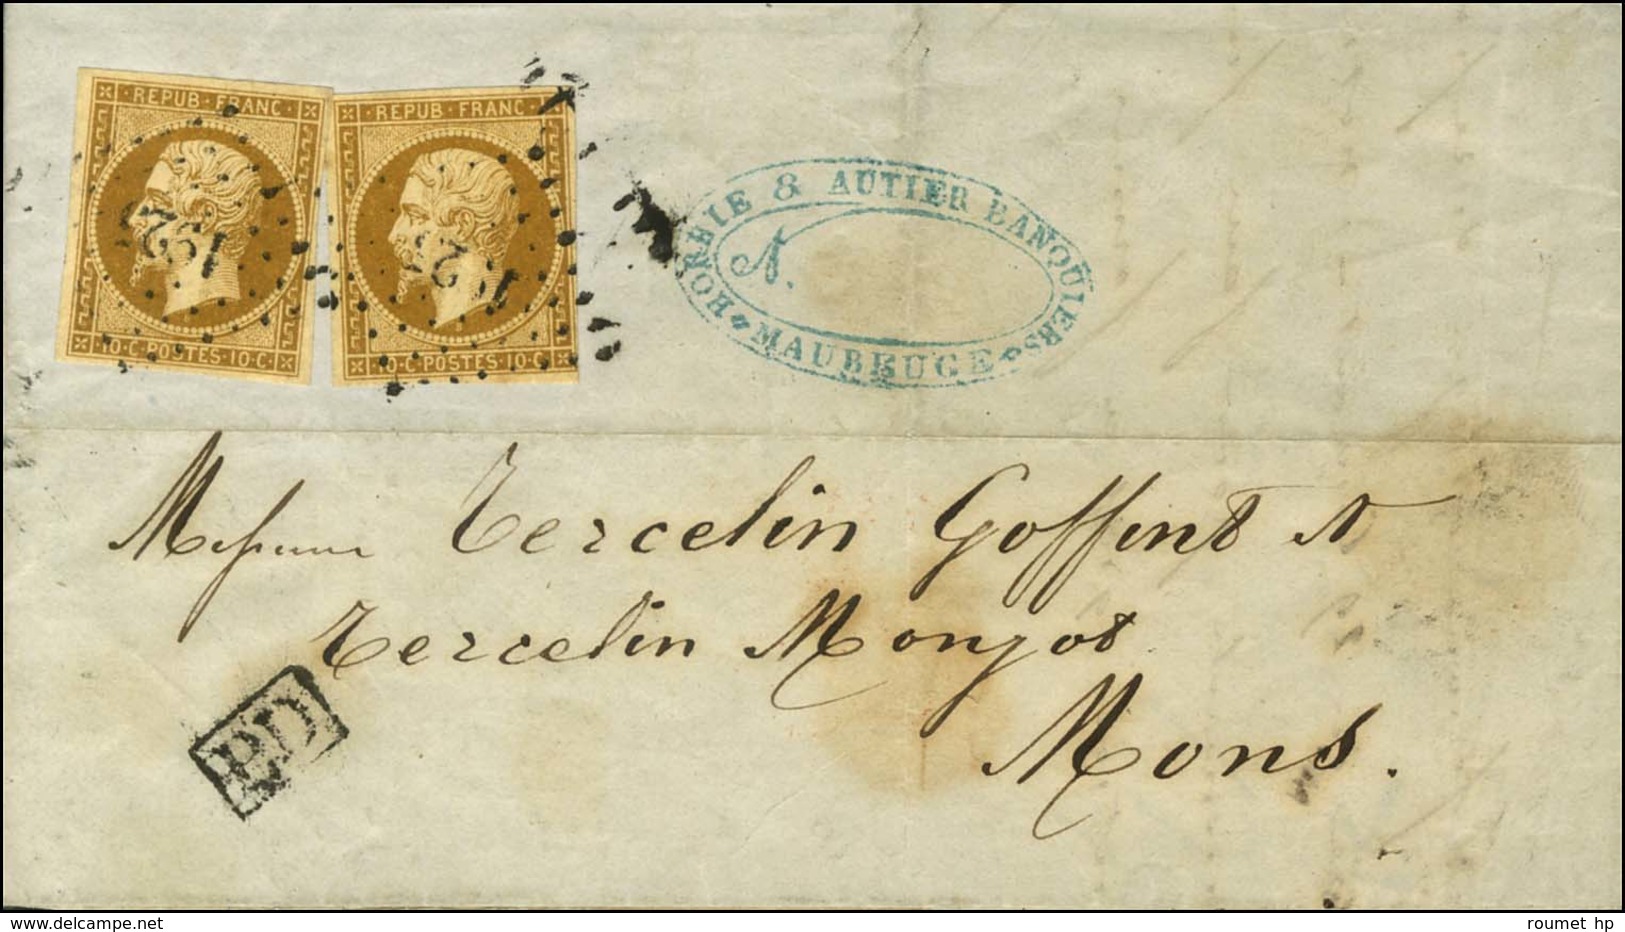 REPUB · FRANC ·
10 · C · POSTES · 10 · C ·
1925
REPUB · FRANC ·
10 · C · POSTES · 10 · C ·
HORBIE & AUTIER BANQUIERS
MAUBEUGE
Tercelin Goffint
Tercelin Monjot
Mons.
PD
delcampe.net
roumet hp